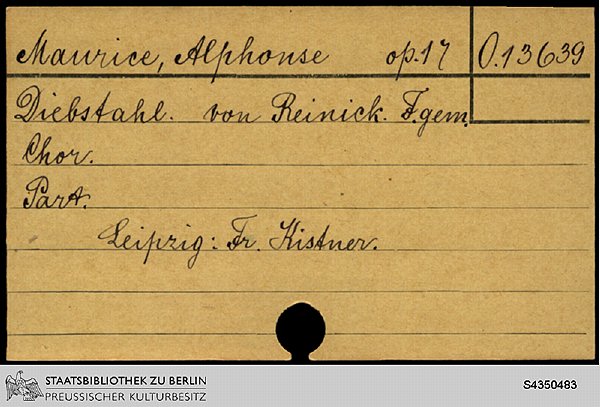 Maurice, Alphonse op. 17 O.13639
Diebstahl. von Reinick. F. gem.
Chor.
Part.
Leipzig: Fr. Kistner.
STAATSBIBLIOTHEK ZU BERLIN
PREUSSISCHER KULTURBESITZ
S4350483